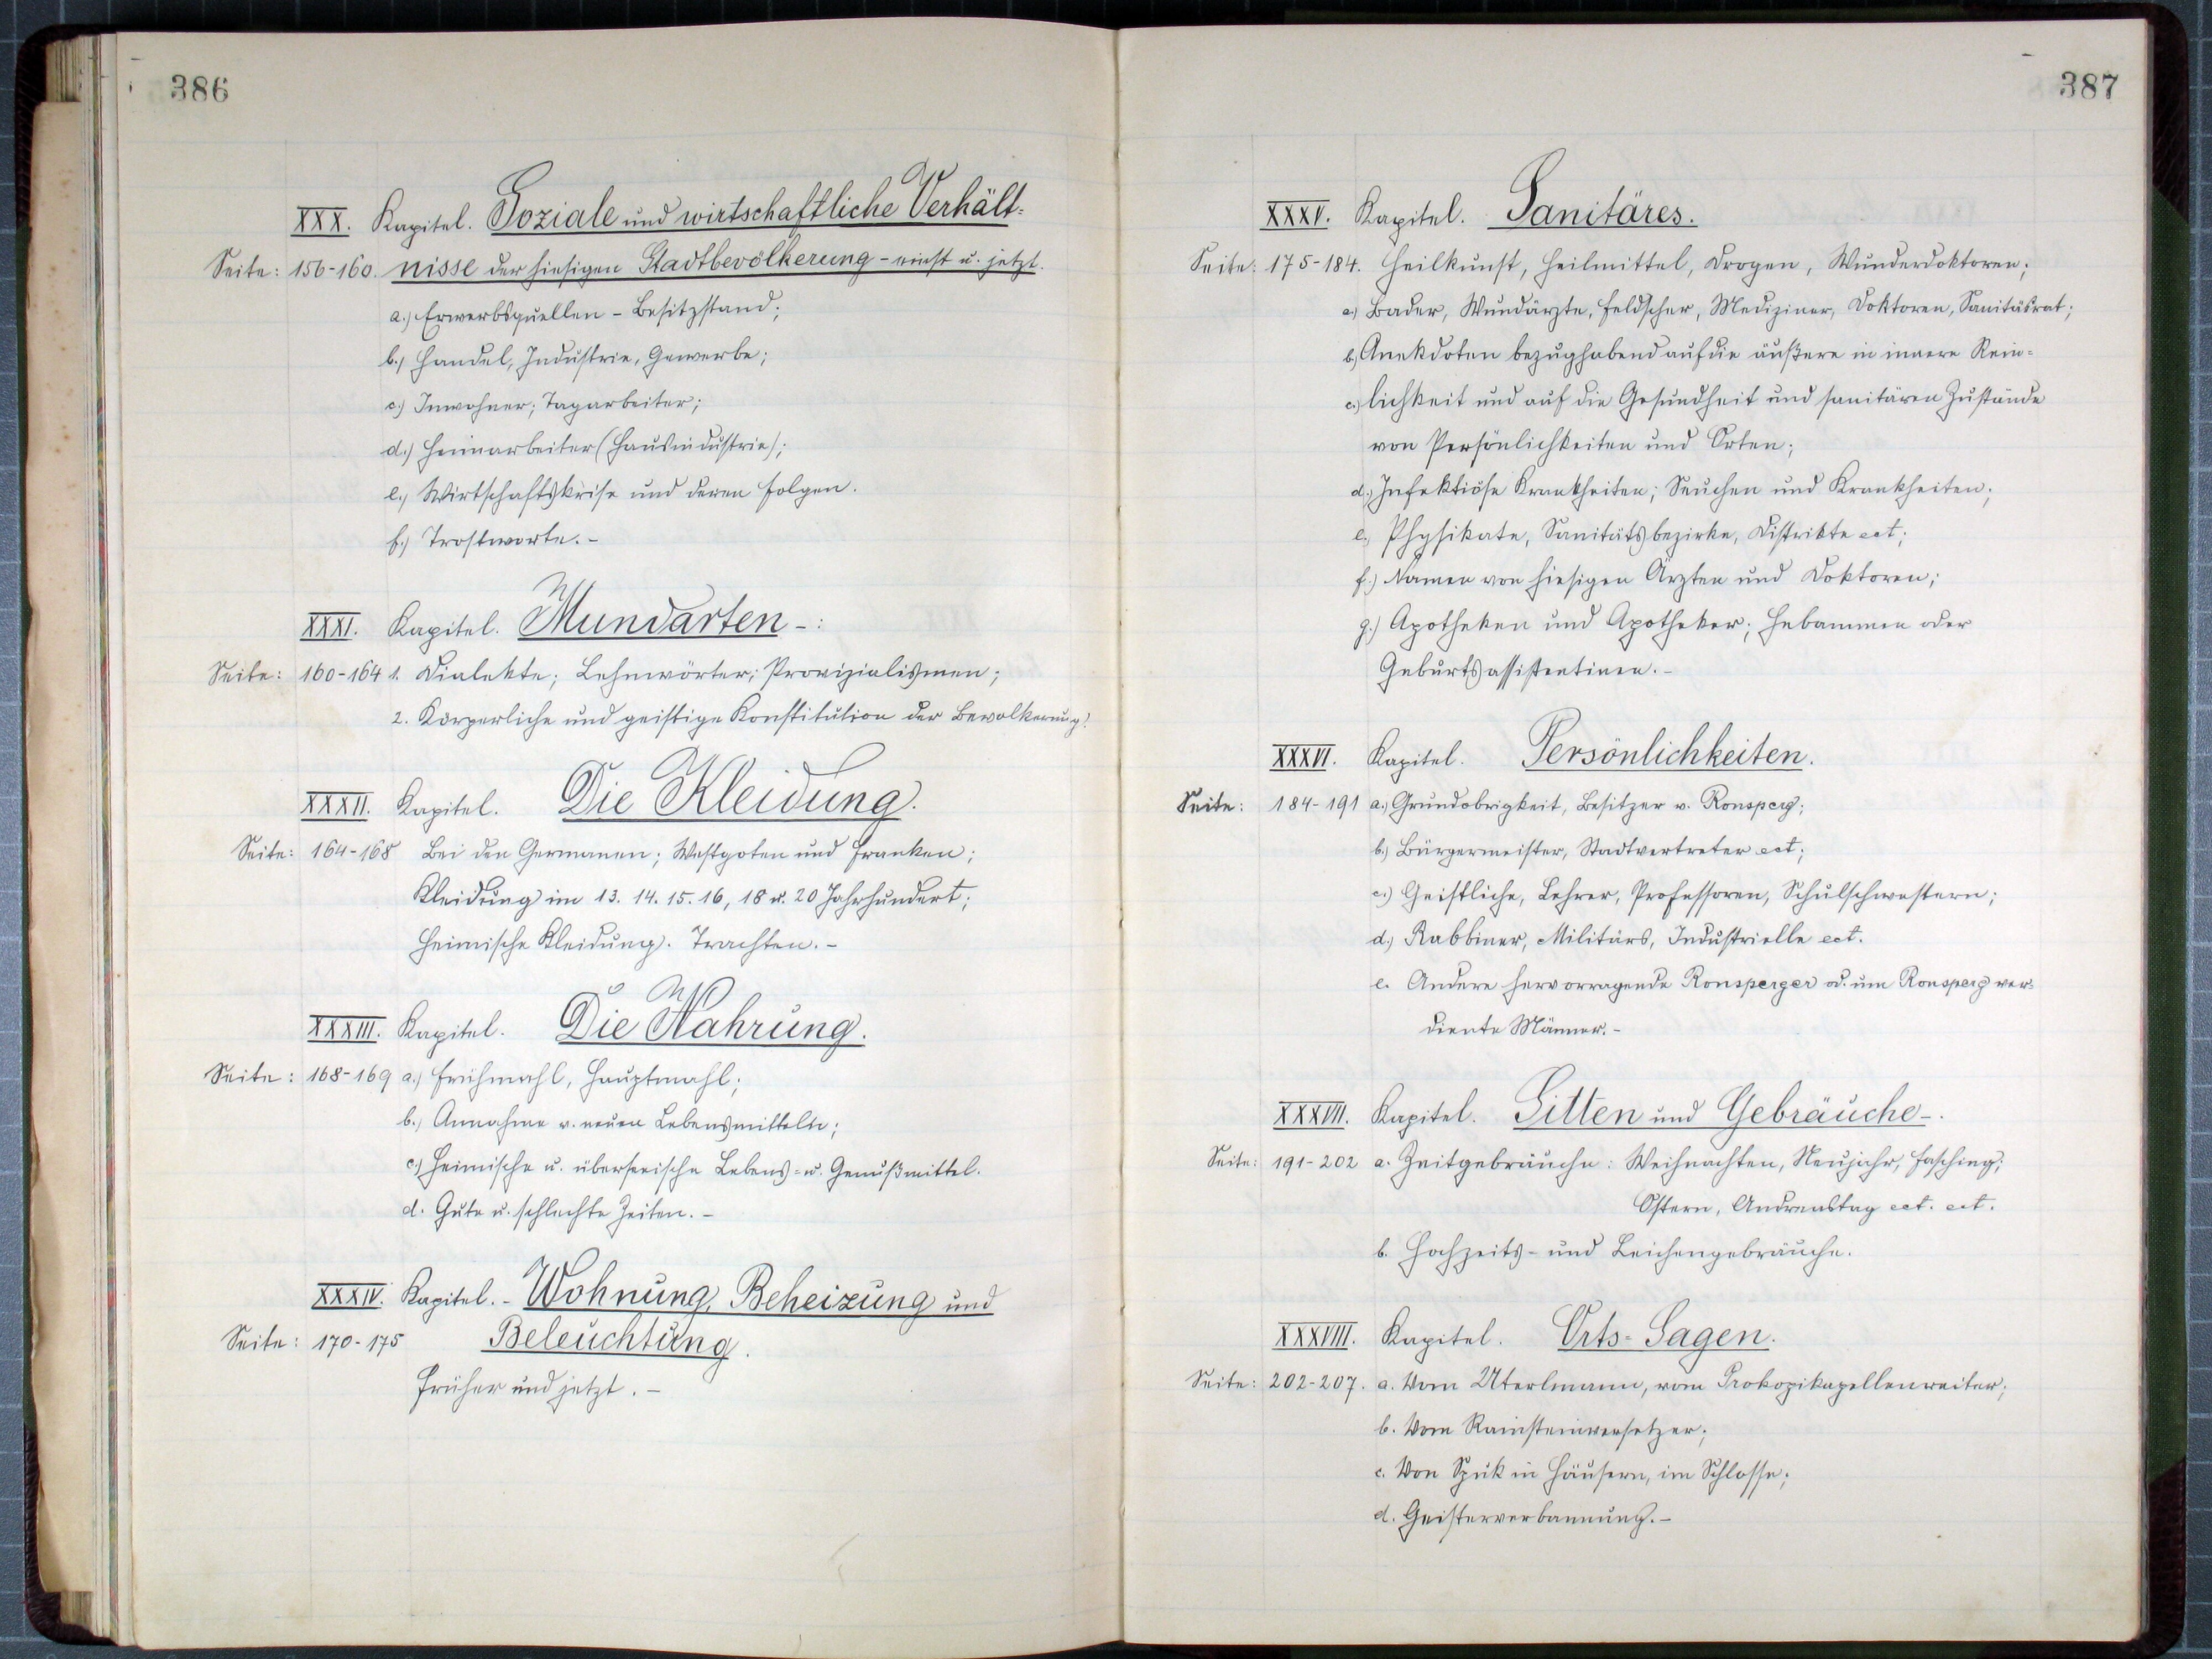 386
XXX. Kapitel. Soziale und wirtschaftliche Verhält-
Seite: 156-160. nisse der hiesigen Stadtbevölkerung - einst u. jetzt.
a.) Erwerbsquellen - Besitzstand;
b.) Handel, Industrie, Gewerbe;
c.) Inwohner; Tagarbeiter;
d.) Heimarbeiter (Hausindustrie);
e.) Wirtschaftskrise und deren Folgen.
f.) Trostworte. -
XXXI. Kapitel. Mundarten -:
Seite: 160-164 1. Dialekte; Lehnwörter; Provizialismen;
2. Körperliche und geistige Konstitution der Bevölkerung!
XXXII. Kapitel. Die Kleidung.
Seite: 164-168 Bei den Germanen; Westgoten und Franken;
Kleidung im 13. 14. 15. 16, 18 u. 20 Jahrhundert;
Heimische Kleidung. Trachten. -
XXXIII. Kapitel. Die Nahrung.
Seite: 168-169 a.) Frühmahl, Hauptmahl;
b.) Annahme v. neuen Lebensmitteln;
c.) Heimische u. überseeische Lebens- u. Genußmittel.
d. Gute u. schlechte Zeiten. -
XXXIV. Kapitel. - Wohnung, Beheizung und
Seite: 170-175 Beleuchtung.
Früher und jetzt. -
387
XXXV. Kapitel. Sanitäres.
Seite: 175-184. Heilkunst, Heilmittel, Drogen, Wunderdoktoren;
a.) Bader, Wundärzte, Feldscher, Mediziner, Doktoren, Sanitäsrat;
b.) Anekdoten bezughabend auf die äußere in innere Rein-
c.) lichkeit und auf die Gesundheit und sanitären Zustände
von Persönlichkeiten und Orten;
d.) Infektiöse Krankheiten; Seuchen und Krankheiten;
e.) Physikate, Sanitätsbezirke, Distrikte ect;
f.) Namen von hiesigen Ärzten und Doktoren;
g.) Apotheken und Apotheker; Hebammen oder
Geburtsassistentinen. -
XXXVI. Kapitel. Persönlichkeiten.
Seite: 184-191 a.) Grundobrigkeit, Besitzer v. Ronsperg;
b.) Bürgermeister, Stadtvertreter ect;
c.) Geistliche, Lehrer, Professoren, Schulschwestern;
d.) Rabbiner, Militärs, Industrielle ect.
e. Andere hervorragende Ronsperger od. um Ronsperg ver-
diente Männer. -
XXXVII. Kapitel. Sitten und Gebräuche -.
Seite: 191-202 a. Zeitgebräuche: Weihnachten, Neujahr, Fasching;
Ostern, Andreastag ect. ect.
b. Hochzeits- und Leichengebräuche.
XXXVIII. Kapitel. Orts-Sagen.
Seite: 202-207. a. Vom Uterlmann, vom Prokopikapellenreiter;
b. Vom Rainsteinversetzer;
c. Von Spuk in Häusern, im Schlosse;
d. Geisterverbannung. -